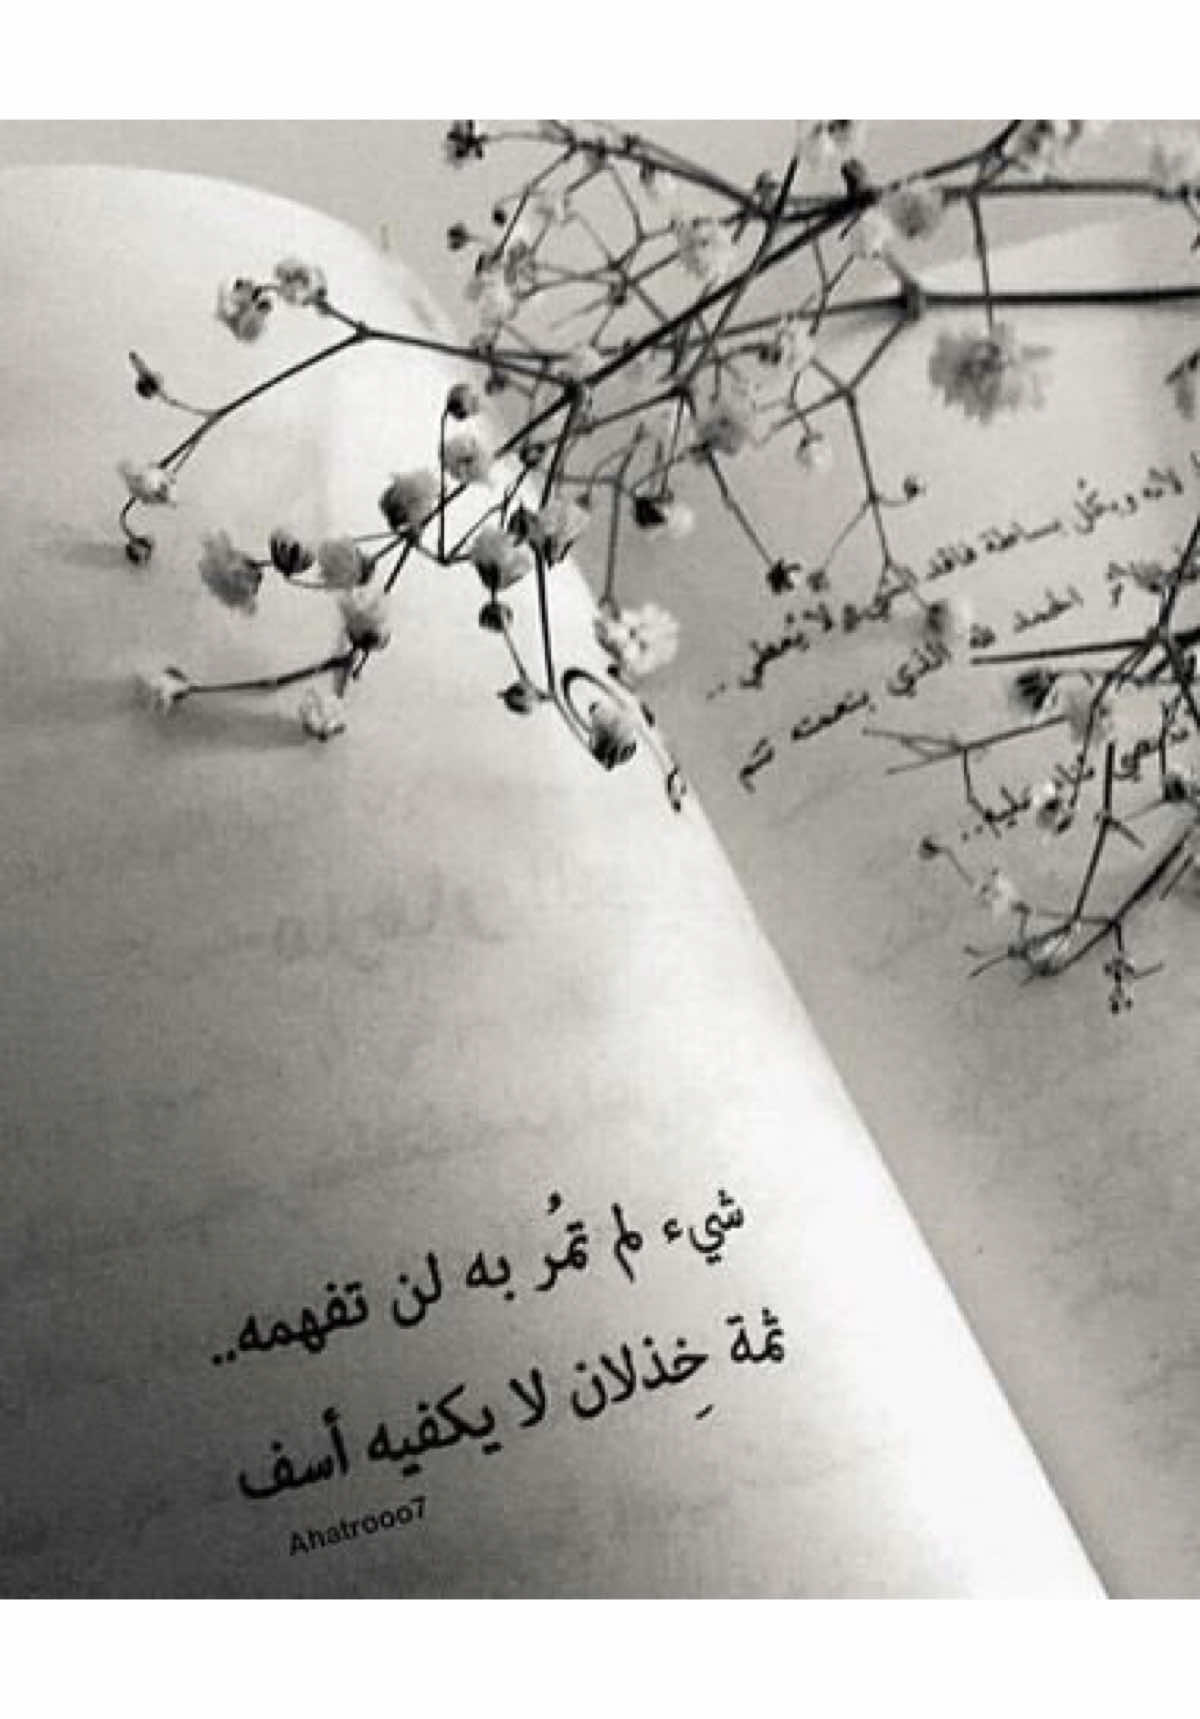 لأنه وبكُل بساطة فاقد الشيء لا يُعطي ..
الحمد لله الذي بنعمته تتم
شيء لم تمُر به لن تفهمه..
ثمة خِذلان لا يكفيه أسف
Ahatrooo7